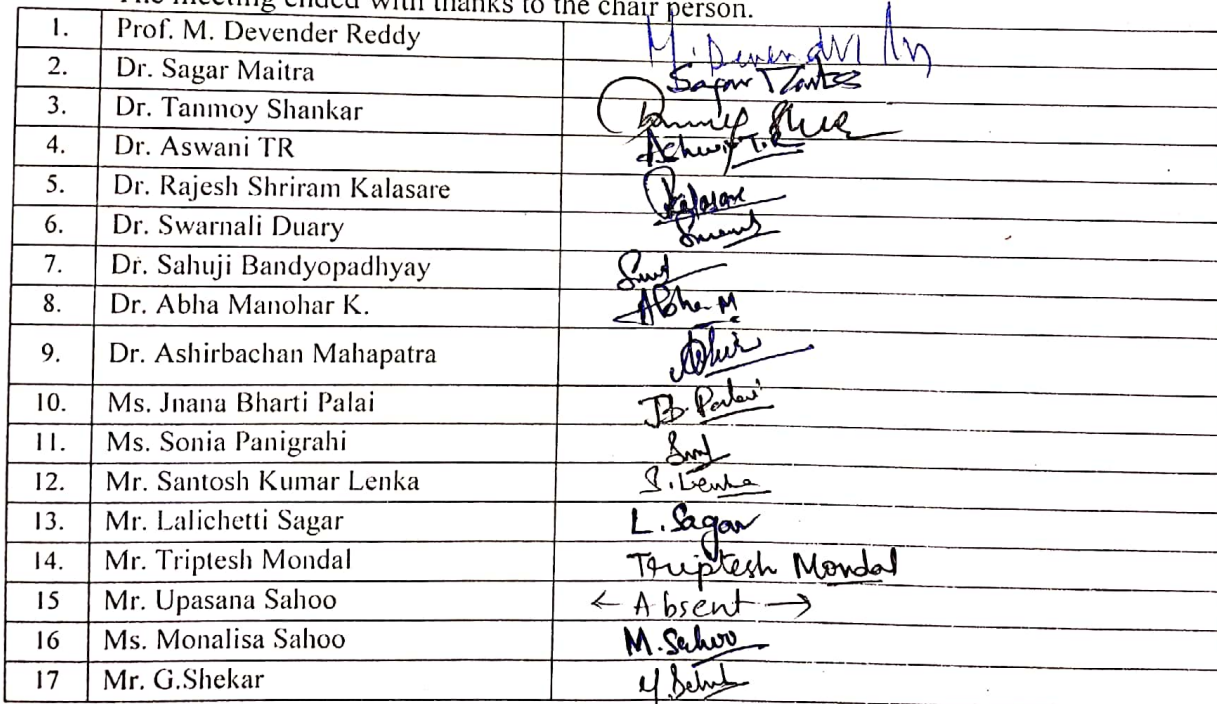 The meeting ended with thanks to the chair person.
1. Prof. M. Devender Reddy
2. Dr. Sagar Maitra
3. Dr. Tanmoy Shankar
4. Dr. Aswani TR Ashwini T.R
5. Dr. Rajesh Shriram Kalasare Kalasare
6. Dr. Swarnali Duary
7. Dr. Sahuji Bandyopadhyay
8. Dr. Abha Manohar K. Abha M
9. Dr. Ashirbachan Mahapatra
10. Ms. Jnana Bharti Palai JB. Palai
11. Ms. Sonia Panigrahi
12. Mr. Santosh Kumar Lenka S. Lenka
13. Mr. Lalichetti Sagar L. Sagar
14. Mr. Triptesh Mondal Triptesh Mondal
15 Mr. Upasana Sahoo ← Absent →
16 Ms. Monalisa Sahoo M. Sahoo
17 Mr. G.Shekar